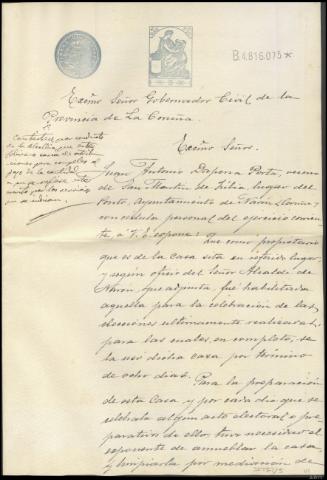 B.4.816.075*
Excmo Señor Gobernador Civil de la
Provincia de La Coruña
Excmo Señor.
Contéstese, por conducto
de la Alcaldía, que esta
carece de
para
pago de la cantidad
Juan Antonio Dapena Porta, vecino
de San Martín de Jubia, lugar del
Ponto, Ayuntamiento de Narón (Coruña)
con cédula personal del ejercicio corrien-
te, a V. E. expone: Que como propietario
que es de la casa sita en referido lugar,
y según oficio del Señor Alcalde de
Narón, que adjunta, fué habilitada
aquella para la celebración de las
elecciones ultimamente realizadas,
para las cuales, en completo, se
la usó dicha casa por término
de ocho días.
Para la preparación
de esta Casa y por cada día que se
celebrata algún acto electoral o pre-
paratorio de ello, tuvo necesidad el
exponente de amueblar la casa,
y limpiarla por mediación de